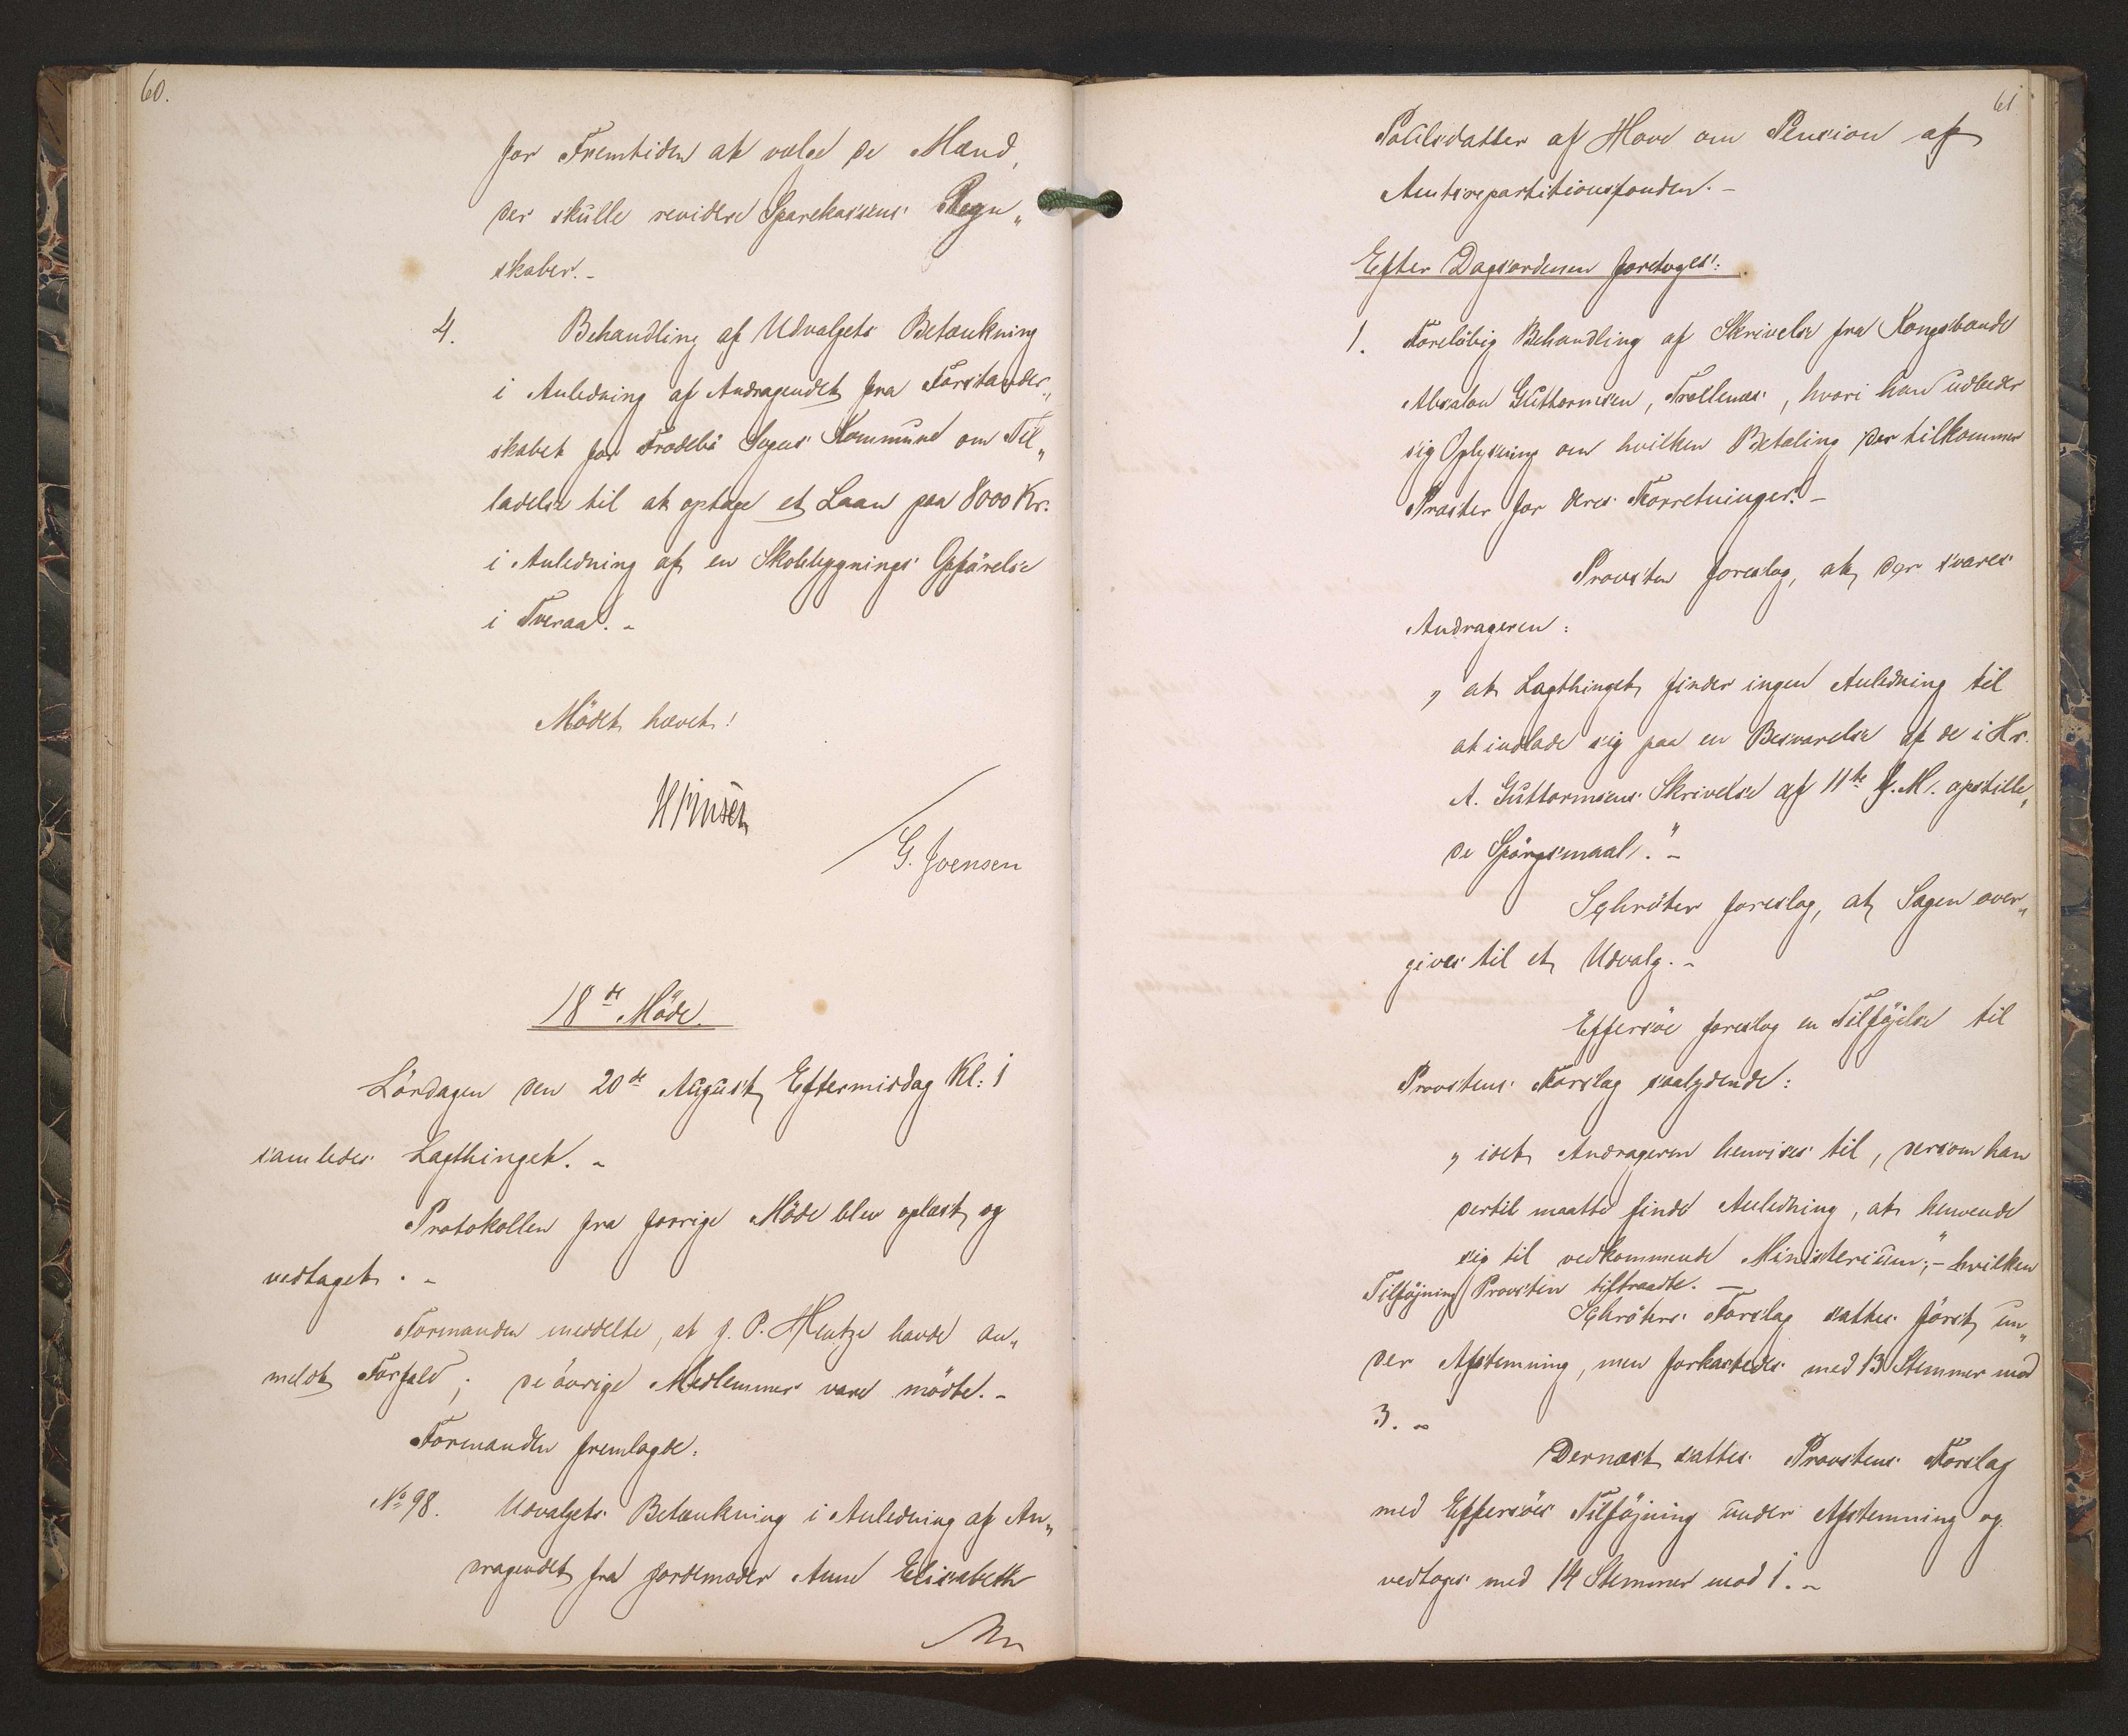 60.
for Fremtiden at vælge de Mænd,
der skulle revidere Sparekassens Regn„
skaber. –
4. Behandling af Udvalgets Betænkning
i Anledning af Andragendet fra Forstander„
skabet for Frodebø Sogns Kommune om Til„
ladelse til at optage et Laan paa 8000 Kr.
i Anledning af en Skolebygnings Opførelse
i Tveraa. –
Mödet hævet!
G. Joensen
18de Möde.
Lördagen den 20de August Eftermiddag Kl: 1
samledes Lagthinget. –
Protokollen fra forrige Möde blev oplæst og
vedtaget. –
Formanden meddelte, at J. P. Hentze havde an„
meldt Forfald; de övrige Medlemmer vare mödte. –
Formanden fremlagde:
No 98. Udvalgets Betænkning i Anledning af An„
dragendet fra Jordemoder Anne Elisabeth
61
Poulsdatter af Hove om Pension af
Amtsrepartitionsfonden. –
Efter Dagsordenen foretoges:
1. Foreløbig Behandling af Skrivelse fra Kongsbonde
Absalon Guttormsen, Trøllenæs, hvori han udbeder
sig Oplysning om hvilken Betaling der tilkommer
Præster for deres Forretninger. –
Provsten foreslog, at der svares
Andrageren:
„at Lagthinget finder ingen Anledning til
at indlade sig paa en Besvarelse af de i Hr.
A. Guttormsens Skrivelse af 11te f. M. opstille„
de Spørgsmaal." –
Schröter foreslog, at Sagen over„
gives til et Udvalg. –
Effersöe foreslog en Tilföjelse til
Provstens Forslag saalydende:
„idet Andrageren henvises til, dersom han
dertil maatte finde Anledning, at henvende
sig til vedkommende Ministerium", – hvilken
Tilföjning Provsten tiltraadte. –
Schröters Forslag sattes först un„
der Afstemning, men forkastedes med 13 Stemmer mod
3. –
Dernæst sattes Provstens Forslag
med Effersöes Tilföjning under Afstemning og
vedtoges med 14 Stemmer mod 1. –